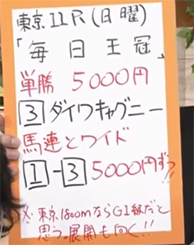 東京11R(日曜)
「毎日王冠」
単勝 5000円
3 ダイワキャグニー
馬連とワイド
1-3 5000円ずつ!!
※東京1800mならG1級だと
思う。展開も向く!!